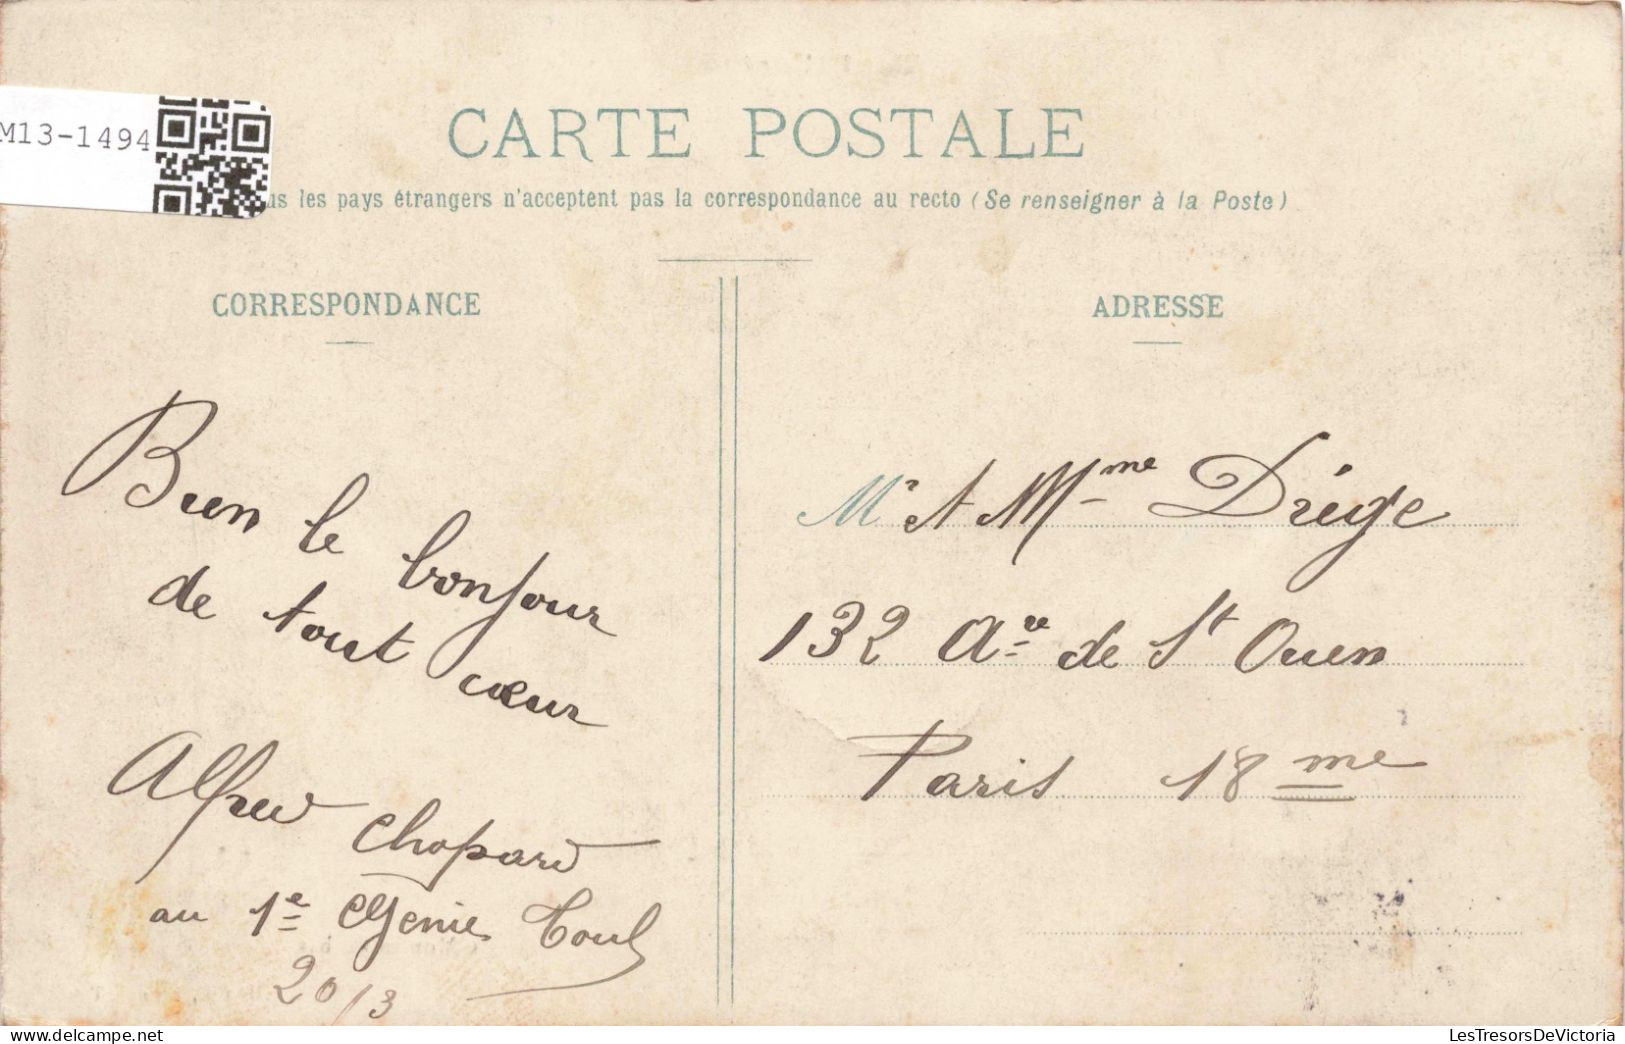 M13-1494
CARTE POSTALE
us les pays étrangers n'acceptent pas la correspondance au recto (Se renseigner à la Poste)
CORRESPONDANCE
Bien le bonjour
de tout cœur
Alfred Chopard
au 1e Génie Toul
20/3
ADRESSE
Mr et Mme Driège
132 Ave de St Ouen
Paris 18me
LesTresorsDeVictoria